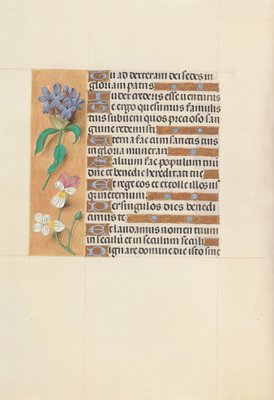 Tu ad dexteram dei sedes in
gloriam patris
Iudex crederis esse venturus
Te ergo quesumus famulis
tuis subveni quos precioso san
guine redemisti
Eterna fac cum sanctis tuis
in gloria munerari
Salvum fac populum tuū
dn̄e et benedic hereditati tue
Et rege eos et extolle illos us
que in eternum
Per singulos dies benedi
cimus te
Et laudamus nomen tuum
in seculū et in seculum seculi
Dignare domine die isto sine